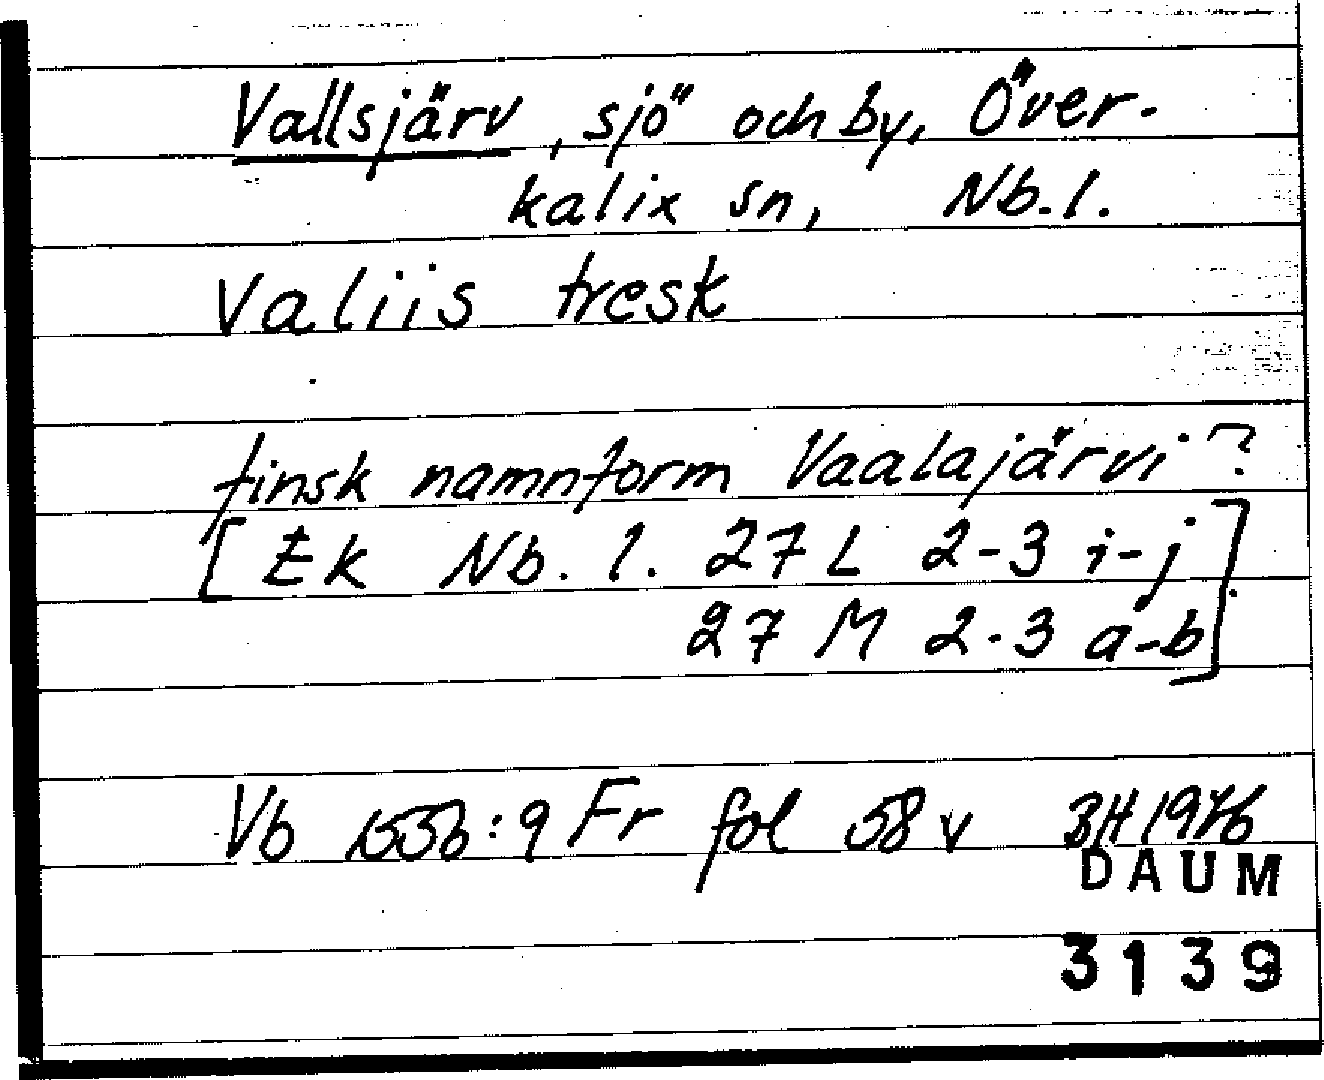 Vallsjärv, sjö och by, Över-
kalix sn, Nb. l.
Valiis tresk
finsk namnform Vaalajärvi?
[Ek Nb. l. 27 L 2-3 i-j
27 M 2-3 a-b]
Vb 1553b:9 Fr fol 58 v BH 1976
DAUM
3139